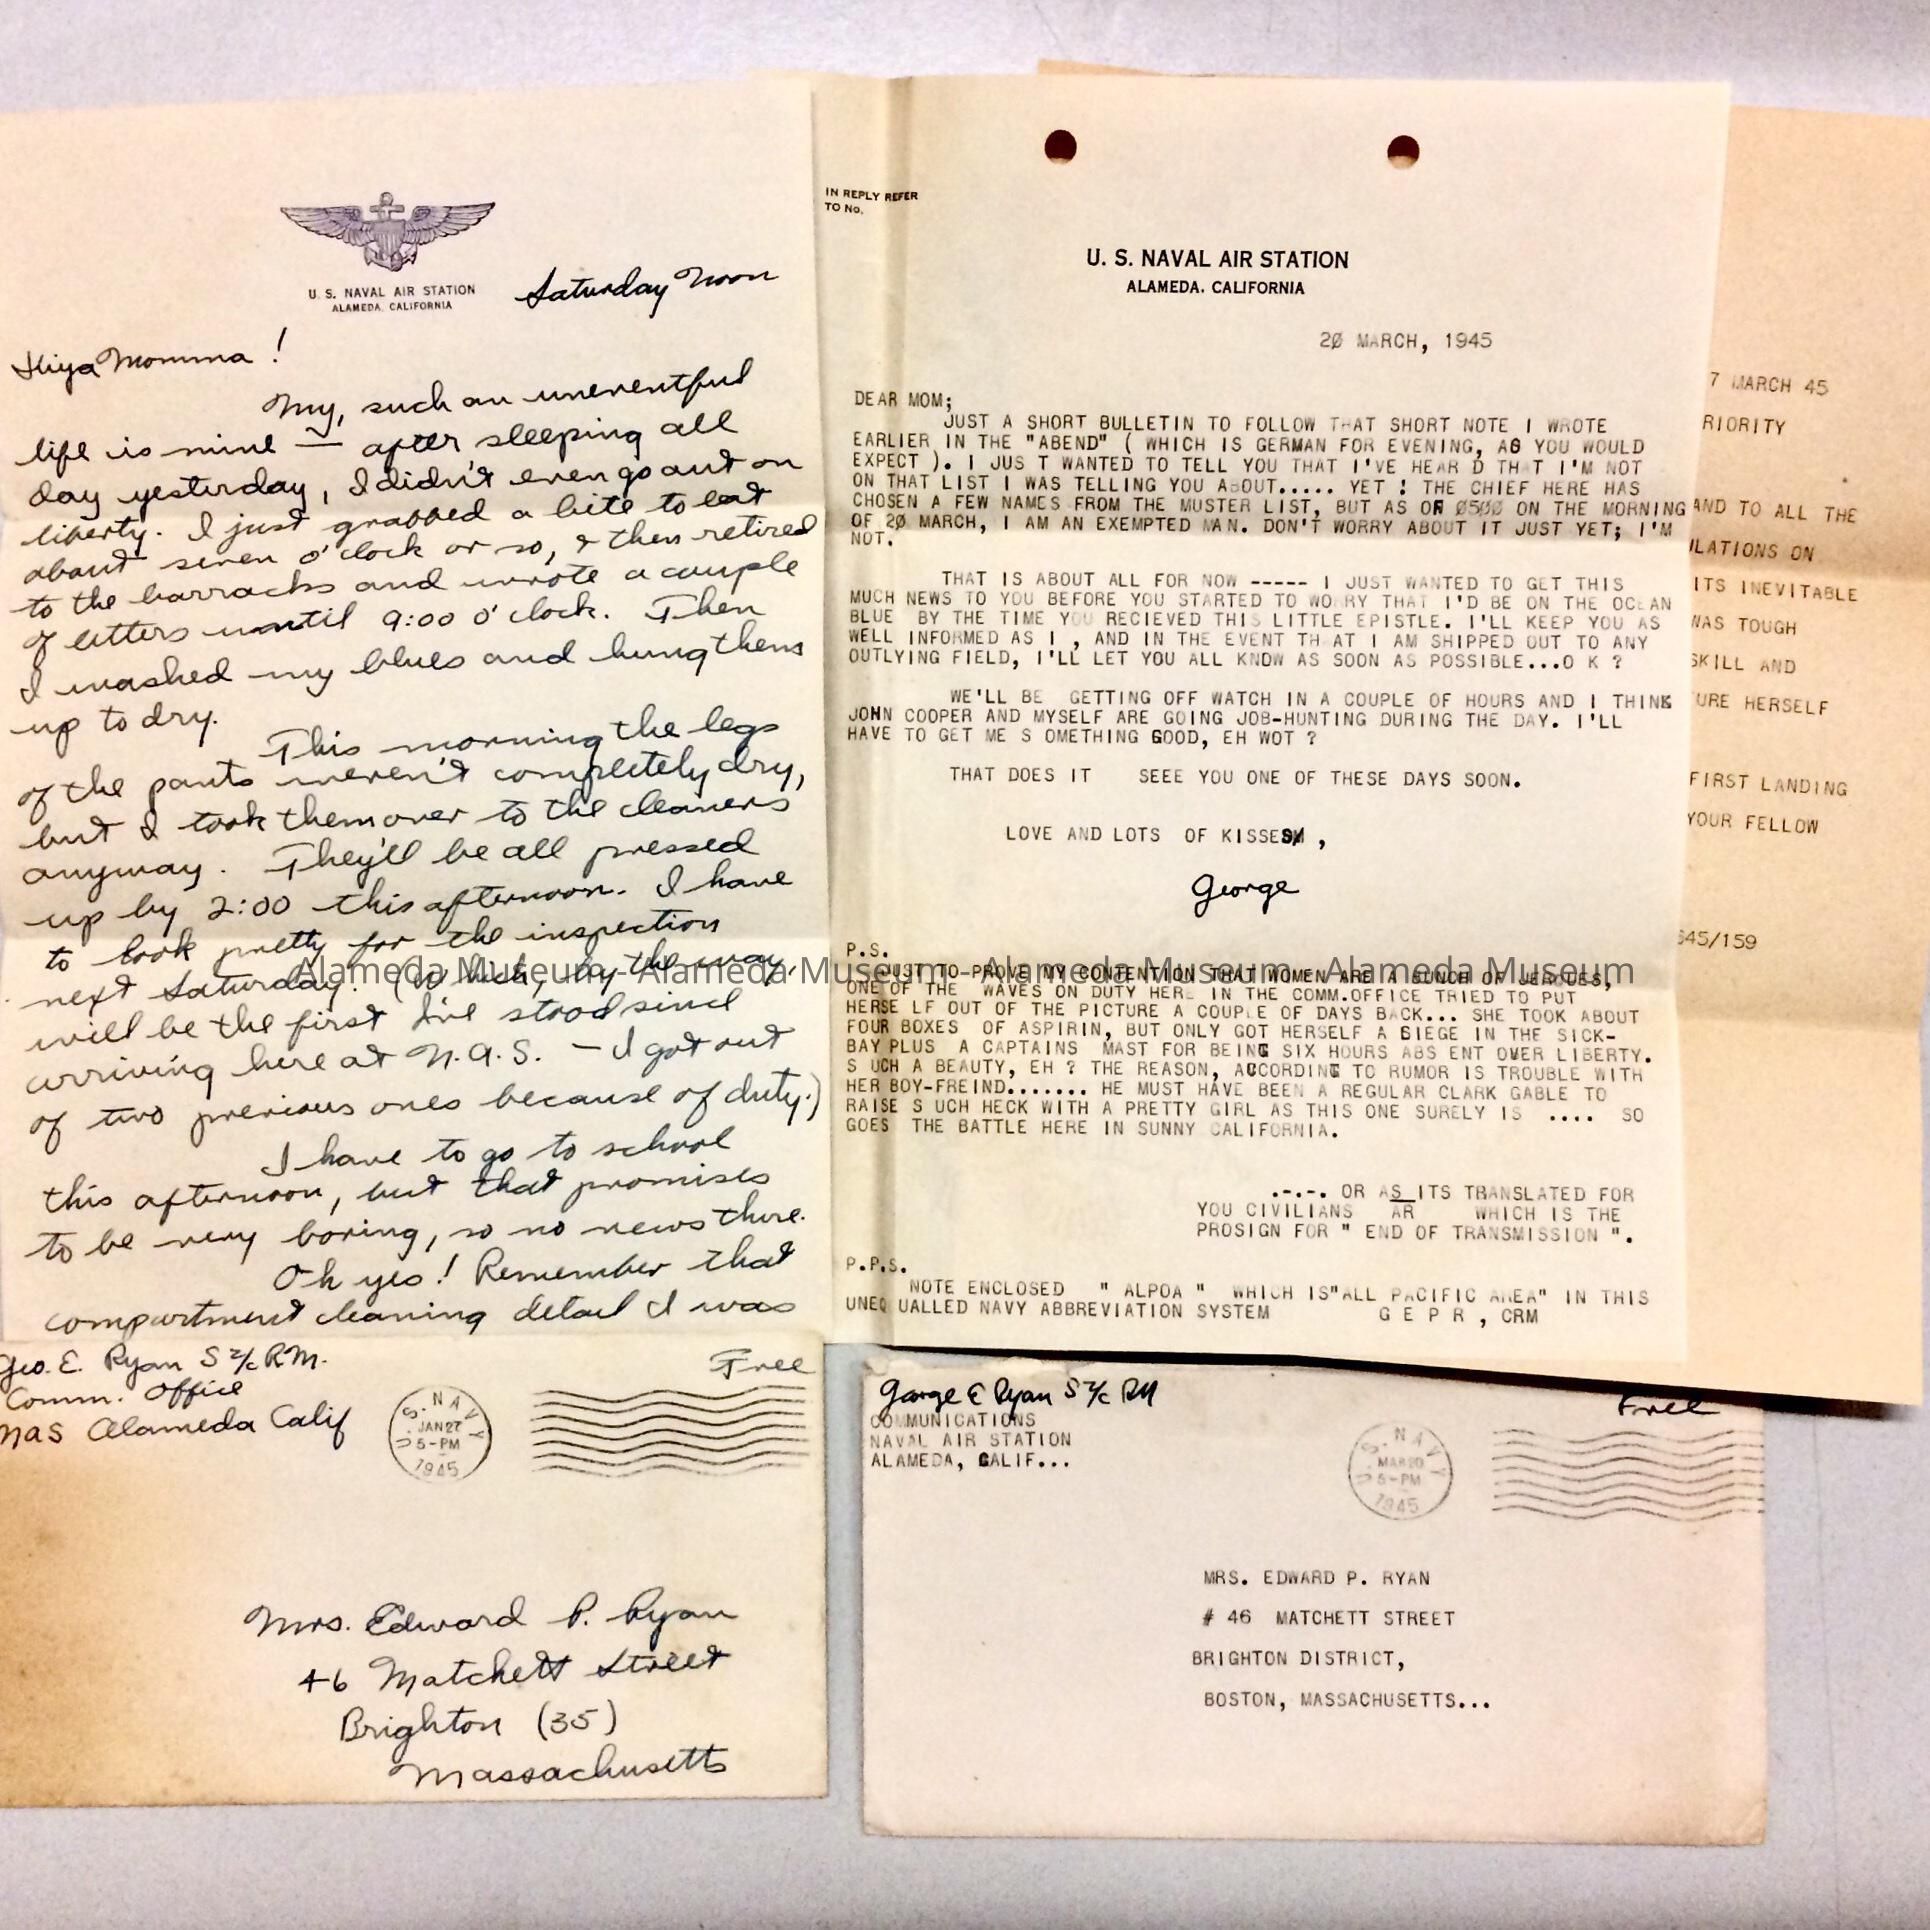 U. S. NAVAL AIR STATION
ALAMEDA, CALIFORNIA
Saturday Noon
Hiya Momma !
My, such an uneventful
life is mine — after sleeping all
day yesterday, I didn't even go out on
liberty. I just grabbed a bite to eat
about seven o'clock or so, & then retired
to the barracks and wrote a couple
of letters until 9:00 o'clock. Then
I washed my blues and hung them
up to dry.
This morning the legs
of the pants weren't completely dry,
but I took them over to the cleaners
anyway. They'll be all pressed
up by 2:00 this afternoon. I have
to look pretty for the inspection
next Saturday. (Which, by the way,
will be the first I've stood since
arriving here at N.A.S. — I got out
of two previous ones because of duty.)
I have to go to school
this afternoon, but that promises
to be very boring, so no news there.
Oh yes! Remember that
compartment cleaning detail I was
Geo. E. Ryan S 2/c R.M.
Comm. Office
NAS Alameda Calif
Free
U.S. NAVY
JAN 27
5-PM
1945
Mrs. Edward P. Ryan
46 Matchett Street
Brighton (35)
Massachusetts
IN REPLY REFER
TO No.
U. S. NAVAL AIR STATION
ALAMEDA, CALIFORNIA
2Ø MARCH, 1945
DEAR MOM;
JUST A SHORT BULLETIN TO FOLLOW THAT SHORT NOTE I WROTE
EARLIER IN THE "ABEND" ( WHICH IS GERMAN FOR EVENING, AS YOU WOULD
EXPECT ). I JUS T WANTED TO TELL YOU THAT I'VE HEAR D THAT I'M NOT
ON THAT LIST I WAS TELLING YOU ABOUT..... YET ! THE CHIEF HERE HAS
CHOSEN A FEW NAMES FROM THE MUSTER LIST, BUT AS OF Ø5ØØ ON THE MORNING
OF 2Ø MARCH, I AM AN EXEMPTED MAN. DON'T WORRY ABOUT IT JUST YET; I'M
NOT.
THAT IS ABOUT ALL FOR NOW ----- I JUST WANTED TO GET THIS
MUCH NEWS TO YOU BEFORE YOU STARTED TO WORRY THAT I'D BE ON THE OCEAN
BLUE BY THE TIME YOU RECIEVED THIS LITTLE EPISTLE. I'LL KEEP YOU AS
WELL INFORMED AS I , AND IN THE EVENT TH AT I AM SHIPPED OUT TO ANY
OUTLYING FIELD, I'LL LET YOU ALL KNOW AS SOON AS POSSIBLE...O K ?
WE'LL BE GETTING OFF WATCH IN A COUPLE OF HOURS AND I THINK
JOHN COOPER AND MYSELF ARE GOING JOB-HUNTING DURING THE DAY. I'LL
HAVE TO GET ME S OMETHING GOOD, EH WOT ?
THAT DOES IT SEEE YOU ONE OF THESE DAYS SOON.
LOVE AND LOTS OF KISSES ,
George
P.S.
JUST TO PROVE MY CONTENTION THAT WOMEN ARE A BUNCH OF JERQUES,
ONE OF THE WAVES ON DUTY HERE IN THE COMM.OFFICE TRIED TO PUT
HERSE LF OUT OF THE PICTURE A COUPLE OF DAYS BACK... SHE TOOK ABOUT
FOUR BOXES OF ASPIRIN, BUT ONLY GOT HERSELF A SIEGE IN THE SICK-
BAY PLUS A CAPTAINS MAST FOR BEING SIX HOURS ABS ENT OVER LIBERTY.
S UCH A BEAUTY, EH ? THE REASON, ACCORDING TO RUMOR IS TROUBLE WITH
HER BOY-FREIND....... HE MUST HAVE BEEN A REGULAR CLARK GABLE TO
RAISE S UCH HECK WITH A PRETTY GIRL AS THIS ONE SURELY IS .... SO
GOES THE BATTLE HERE IN SUNNY CALIFORNIA.
.-.-. OR AS ITS TRANSLATED FOR
YOU CIVILIANS AR WHICH IS THE
PROSIGN FOR " END OF TRANSMISSION ".
P.P.S.
NOTE ENCLOSED " ALPOA " WHICH IS"ALL PACIFIC AREA" IN THIS
UNEQ UALLED NAVY ABBREVIATION SYSTEM G E P R , CRM
George E Ryan S 2/c RM
COMMUNICATIONS
NAVAL AIR STATION
ALAMEDA, CALIF...
Free
U.S. NAVY
MAR 20
5-PM
1945
MRS. EDWARD P. RYAN
# 46 MATCHETT STREET
BRIGHTON DISTRICT,
BOSTON, MASSACHUSETTS...
7 MARCH 45
RIORITY
AND TO ALL THE
ULATIONS ON
ITS INEVITABLE
WAS TOUGH
SKILL AND
URE HERSELF
FIRST LANDING
YOUR FELLOW
545/159
Alameda Museum - Alameda Museum - Alameda Museum - Alameda Museum